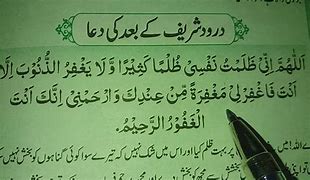 درود شریف کے بعد کی دعا
اَللّٰهُمَّ اِنِّیْ ظَلَمْتُ نَفْسِیْ ظُلْمًا کَثِیْرًا وَّلَا یَغْفِرُ الذُّنُوْبَ اِلَّا
اَنْتَ فَاغْفِرْ لِیْ مَغْفِرَةً مِّنْ عِنْدِكَ وَارْحَمْنِیْ اِنَّكَ اَنْتَ
الْغَفُوْرُ الرَّحِیْمُ
پر بہت ظلم کیا اور اس میں شک نہیں کہ تیرے سوا کوئی گناہوں کو بخش نہیں